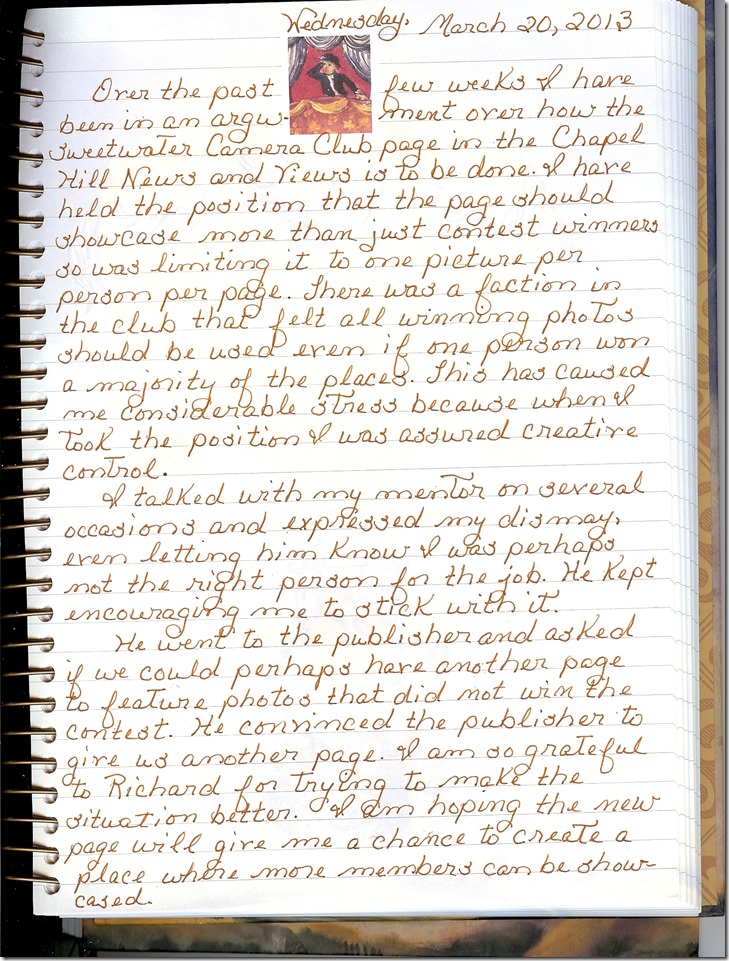 Wednesday, March 20, 2013
Over the past few weeks I have
been in an argu- ment over how the
Sweetwater Camera Club page in the Chapel
Hill News and Views is to be done. I have
held the position that the page should
showcase more than just contest winners
so was limiting it to one picture per
person per page. There was a faction in
the club that felt all winning photos
should be used even if one person won
a majority of the places. This has caused
me considerable stress because when I
took the position I was assured creative
control.
I talked with my mentor on several
occasions and expressed my dismay,
even letting him know I was perhaps
not the right person for the job. He kept
encouraging me to stick with it.
He went to the publisher and asked
if we could perhaps have another page
to feature photos that did not win the
contest. He convinced the publisher to
give us another page. I am so grateful
to Richard for trying to make the
situation better. I am hoping the new
page will give me a chance to create a
place where more members can be show-
cased.